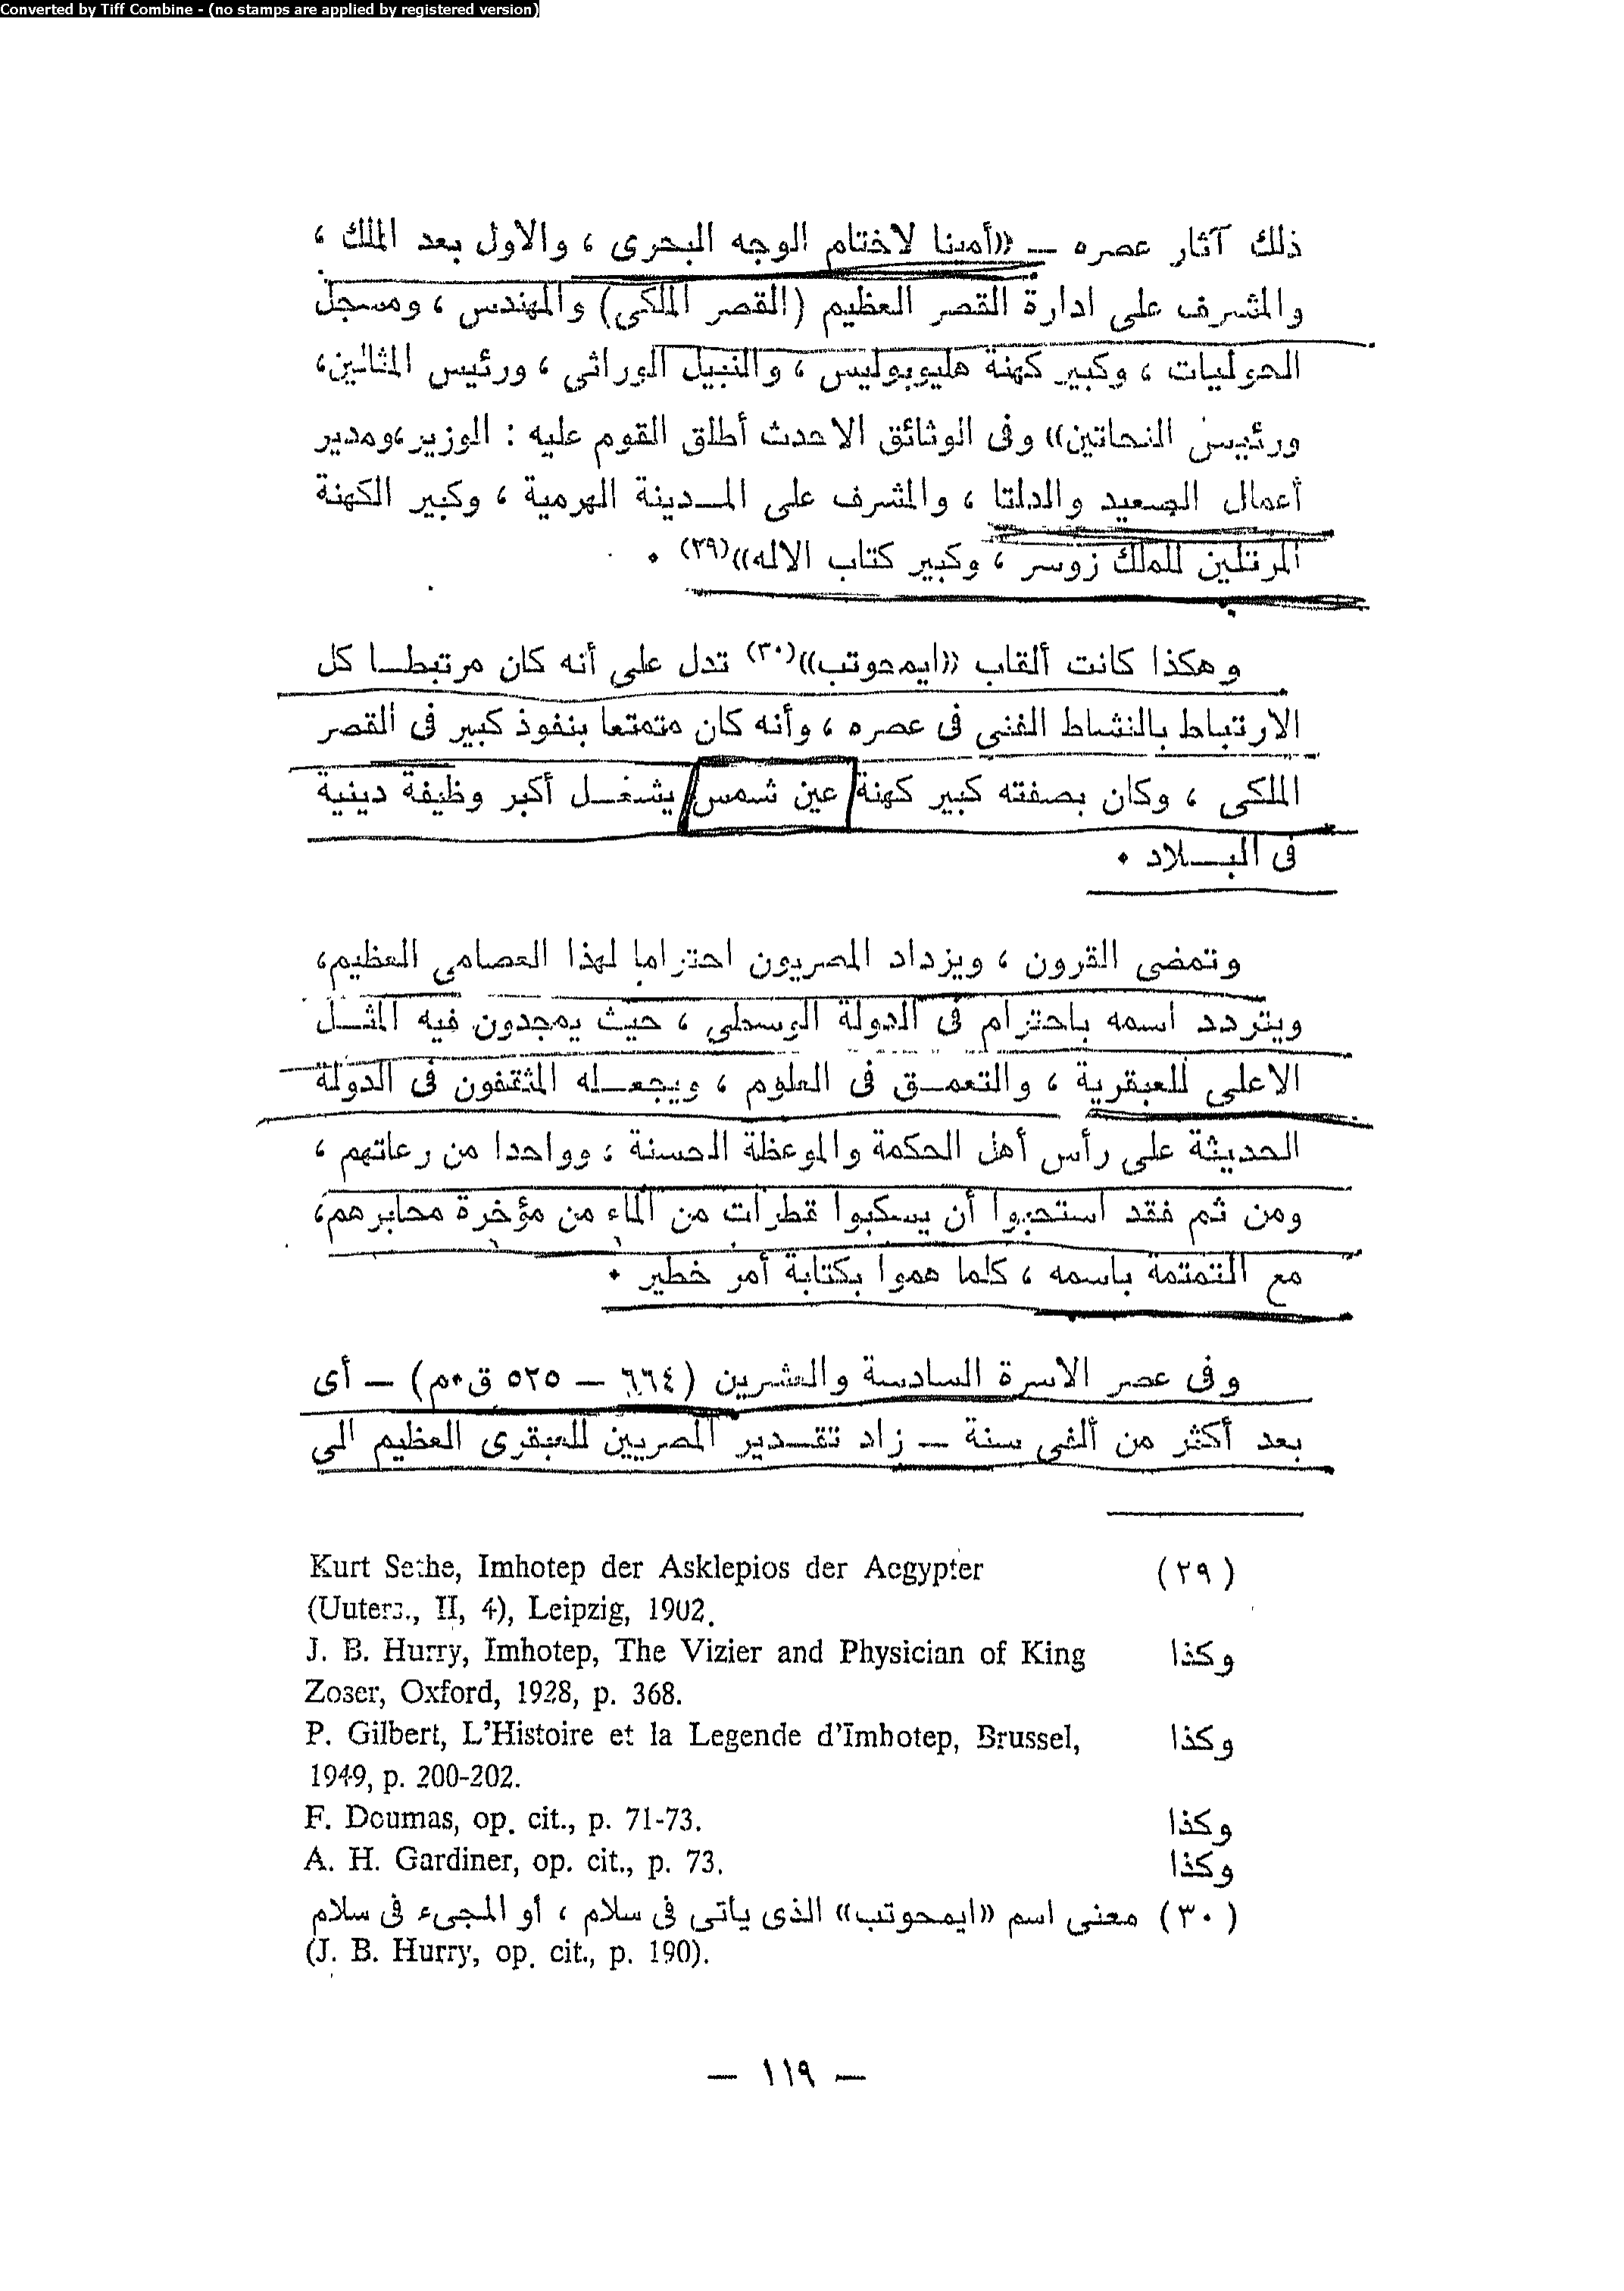 Converted by Tiff Combine - (no stamps are applied by registered version)
ذلك آثار عصره — «أمينا لاختام الوجه البحرى ، والاول بعد الملك ،
والمشرف على ادارة القصر العظيم (القصر الملكى) والمهندس ، ومسجل
الحوليات ، وكبير كهنة هليوبوليس ، والنبيل الوراثى ، ورئيس المثالين،
ورئيس النحاتين» وفى الوثائق الاحدث أطلق القوم عليه : الوزير،ومدير
أعمال الصعيد والدلتا ، والمشرف على المـدينة الهرمية ، وكبير الكهنة
المرتلين للملك زوسر ، وكبير كتاب الاله»(٢٩) ٠
وهكذا كانت ألقاب «ايمحوتب»(٣٠) تدل على أنه كان مرتبطـا كل
الارتباط بالنشاط الفنى فى عصره ، وأنه كان متمتعا بنفوذ كبير فى القصر
الملكى ، وكان بصفته كبير كهنة عين شمس يشغـل أكبر وظيفة دينية
فى البـلاد ٠
وتمضى القرون ، ويزداد المصريون احتراما لهذا العصامى العظيم،
ويتردد اسمه باحترام فى الدولة الوسطى ، حيث يمجدون فيه المثـل
الاعلى للعبقرية ، والتعمـق فى العلوم ، ويجعـله المثقفون فى الدولة
الحديثة على رأس أهل الحكمة والموعظة الحسنة ، وواحدا من رعاتهم ،
ومن ثم فقد استحبوا أن يسكبوا قطرات من الماء من مؤخرة محابرهم،
مع التمتمة باسمه ، كلما هموا بكتابة أمر خطير ٠
وفى عصر الاسرة السادسة والعشرين (٦٦٤ — ٥٢٥ ق٠م) — أى
بعد أكثر من ألفى سنة — زاد تقـدير المصريين للعبقرى العظيم الى
(٢٩) Kurt Sethe, Imhotep der Asklepios der Aegypter
(Uuters., II, 4), Leipzig, 1902.
وكذا J. B. Hurry, Imhotep, The Vizier and Physician of King
Zoser, Oxford, 1928, p. 368.
وكذا P. Gilbert, L'Histoire et la Legende d'Imhotep, Brussel,
1949, p. 200-202.
وكذا F. Doumas, op. cit., p. 71-73.
وكذا A. H. Gardiner, op. cit., p. 73.
(٣٠) معنى اسم «ايمحوتب» الذى ياتى فى سلام ، أو المجىء فى سلام
(J. B. Hurry, op. cit., p. 190).
— ١١٩ —